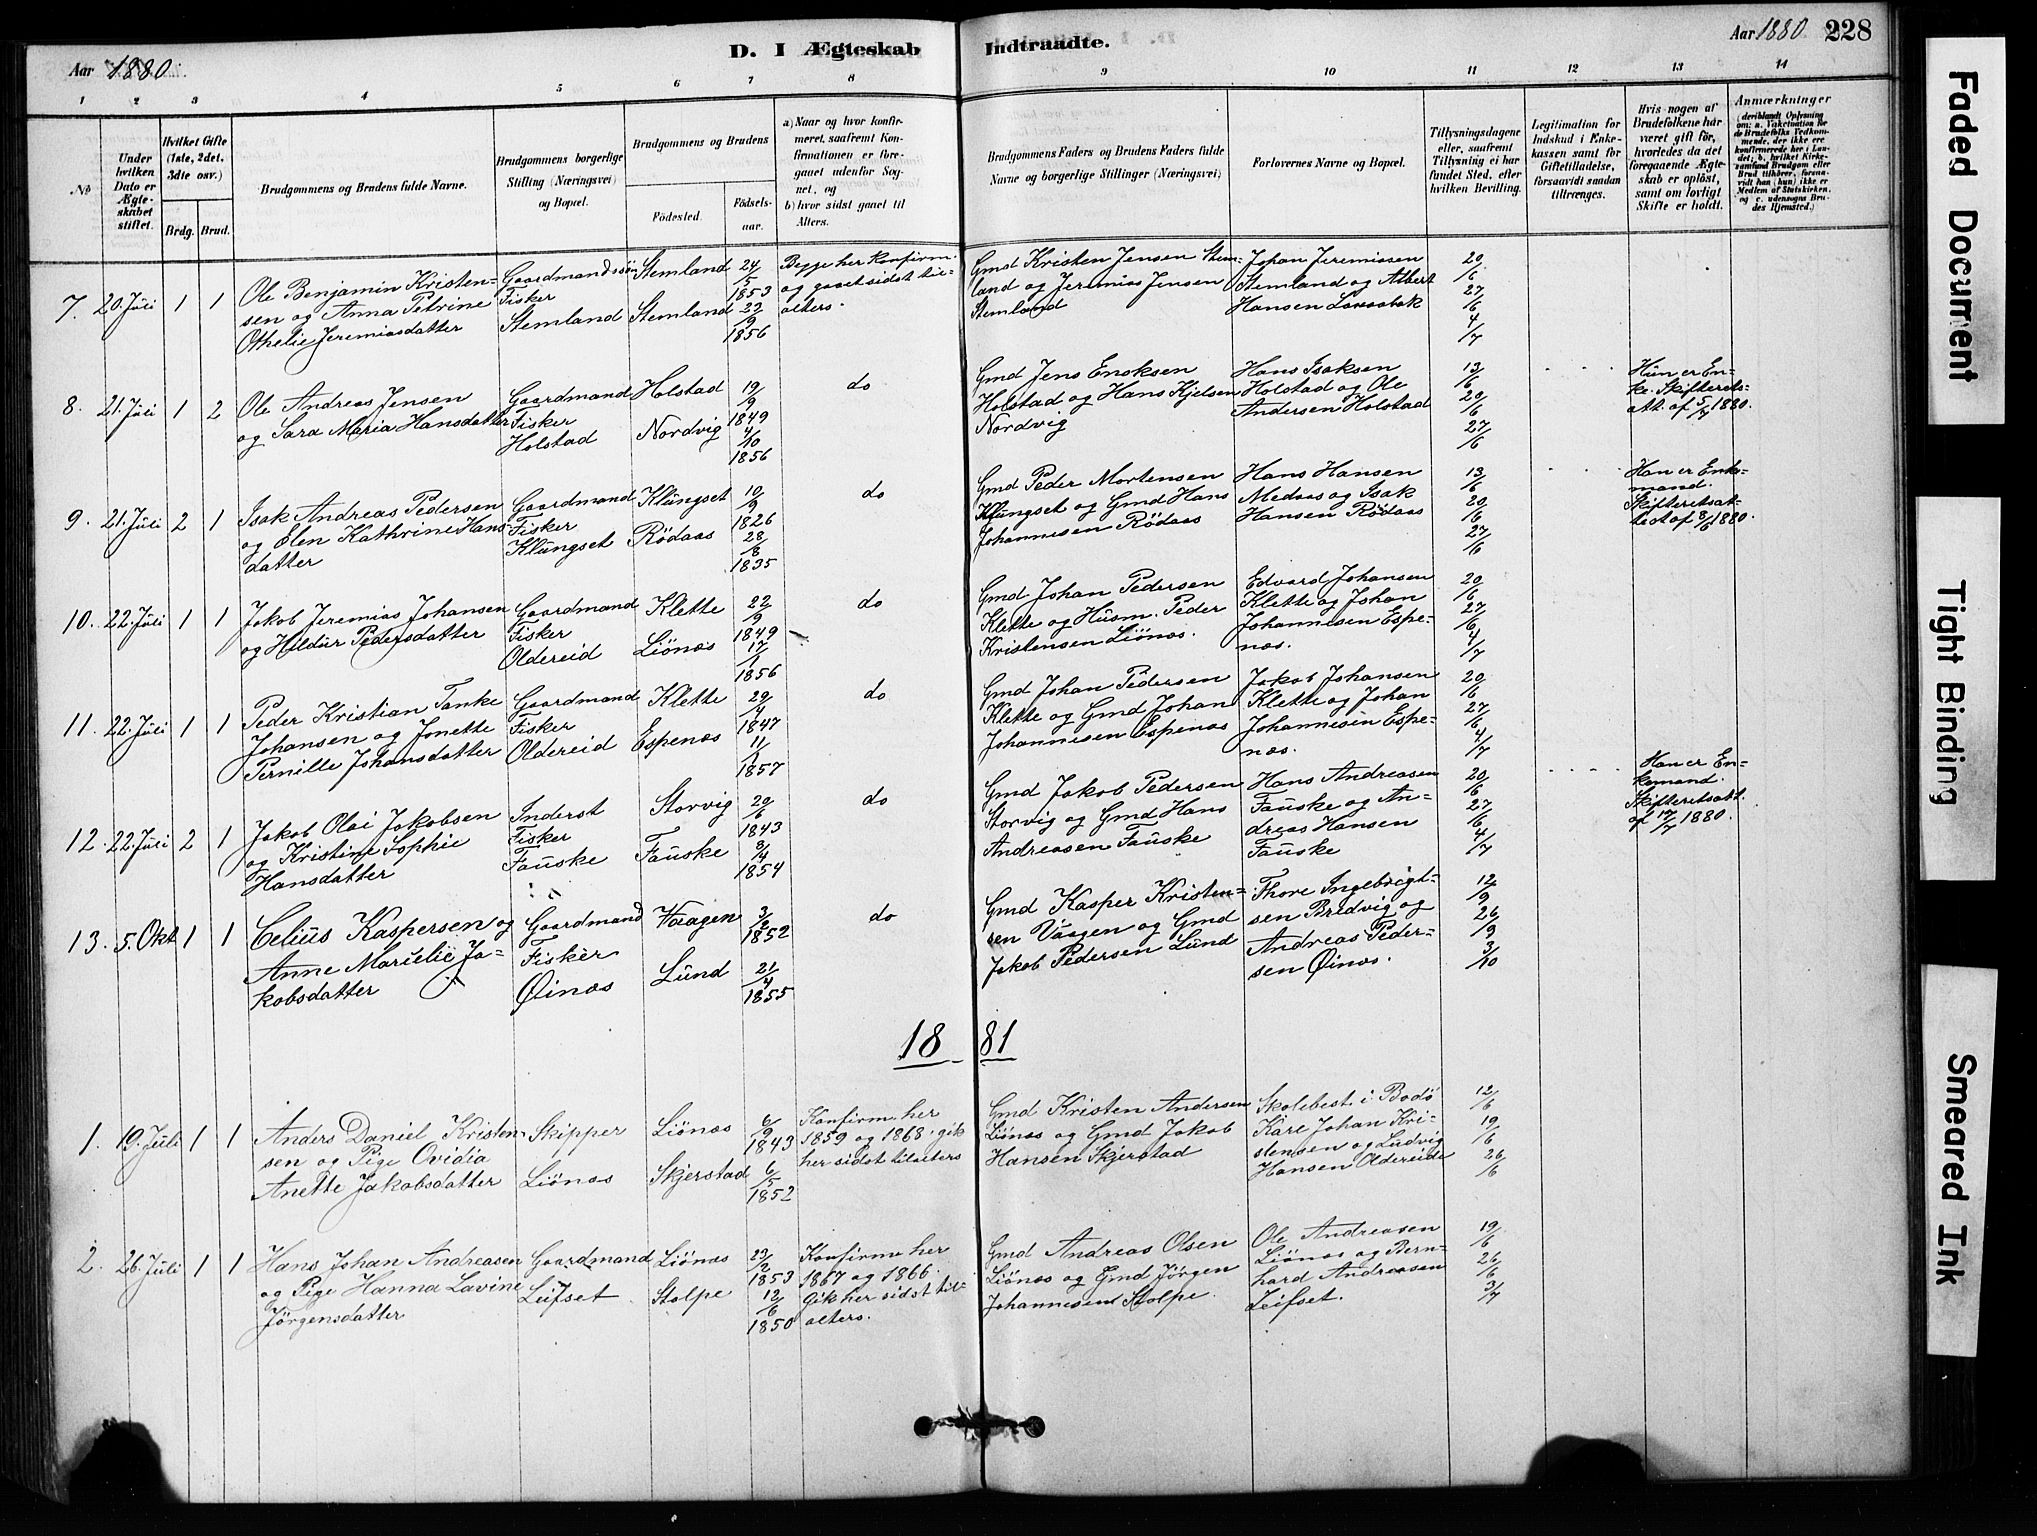 D. I Ægteskab Indtraadte.
Aar 1880.
Aar 1880 228
1 2 3 4 5 6 7 8 9 10 11 12 13 14
No
Under hvilken Dato er Ægteskabet stiftet.
Hvilket Gifte (1ste, 2det, 3die osv.)
Brdg. Brud.
Brudgommens og Brudens fulde Navne.
Brudgommens borgerlige Stilling (Næringsvei) og Bopæl.
Brudgommens og Brudens
Fødested. Fødselsaar.
a) Naar og hvor konfirmeret, saafremt Konfirmationen er foregaaet udenfor Sognet, og
b) hvor sidst gaaet til Alters.
Brudgommens Faders og Brudens Faders fulde Navne og borgerlige Stillinger (Næringsvei)
Forlovernes Navne og Bopæl.
Tillysningsdagene eller, saafremt Tillysning ei har fundet Sted, efter hvilken Bevilling.
Legitimation for Indskud i Enkekassen samt for Giftetilladelse, forsaavidt saadan tiltrænges.
Hvis nogen af Brudefolkene har været gift før, hvorledes da det foregaaende Ægteskab er opløst, samt om lovligt Skifte er holdt.
Anmærkninger (deriblandt Oplysning om: a. Vakcination for de Brudefolks Vedkommende, der ikke ere konfirmerede her i Landet; b. hvilket Kirkesamfund Brudgom eller Brud tilhører, forsaavidt han (hun) ikke er Medlem af Statskirken, og c. udensogns Brudes Hjemsted.)
7. 20. Juli 1 1
Ole Benjamin Kristen=
sen og Anna Petrine
Othelie Jeremiasdatter
Gaardmandssøn
Fisker
Stemland
Stemland
Stemland
24/5 1853
23/9 1856
Begge her konfirm.
og gaaet sidst til=
alters.
Gmd Kristen Jensen Stem=
land og Jeremias Jensen
Stemland
Johan Jeremiasen
Stemland og Albert
Hansen
20/6
27/6
4/7
8. 21. Juli 1 2
Ole Andreas Jensen
og Sara Maria Hansdatter
Gaardmand
Fisker
Holstad
Holstad
Nordvig
19/9 1849
4/10 1856
do
Gmd Jens Enoksen
Holstad og Hans Kjelsen
Nordvig
Hans Isaksen
Holstad og Ole
Andersen Holstad
13/6
20/6
27/6
Hun er En=
ke. Skifterets=
att. af 1880.
9. 21. Juli 2 1
Isak Andreas Pedersen
og Elen Kathrine Hans
datter
Gaardmand
Fisker
Klungset
Klungset
Rödaas
10/9 1826
28/8 1835
do
Gmd Peder Mortensen
Klungset og Gmd Hans
Johannesen Rödaas
Hans Hansen
Medaas og Isak
Hansen Rödaas
13/6
20/6
27/6
Han er Enke=
mand.
Skifteretsat=
test af 8/6 1880.
10. 22. Juli 1 1
Jakob Jeremias Johansen
og Hildur Pedersdatter
Gaardmand
Fisker
Oldereid
Klette
Liönæs
22/9 1849
17/1 1856
do
Gmd Johan Pedersen
Klette og Husm. Peder
Kristensen Liönæs.
Edvard Johansen
Klette og Johan
Johannesen Espe=
næs.
20/6
27/6
4/7
11. 22. Juli 1 1
Peder Kristian Tanke
Johansen og Jonette
Pernille Johansdatter
Gaardmand
Fisker
Oldereid
Klette
Espenæs
29/4 1847
11/1 1857
do
Gmd Johan Pedersen
Klette og Gmd Johan
Johannesen Espenæs
Jakob Johansen
Klette og Johan
Johannesen Espe=
næs.
20/6
27/6
4/7
12. 22. Juli 2 1
Jakob Olai Jakobsen
og Kristine Sophie
Hansdatter
Inderst
Fisker
Fauske
Storvig
Fauske
20/6 1843
8/4 1854
do
Gmd Jakob Pedersen
Storvig og Gmd Hans
Andreasen Fauske
Hans Andreasen
Fauske og An=
dreas Hansen
Fauske
20/6
27/6
4/7
Han er En=
kemand.
Skifteretsatt.
af 17/7 1880.
13. 5. Okt 1 1
Celius Kaspersen og
Anne Marielie Ja=
kobsdatter
Gaardmand
Fisker
Øinæs
Vaagen
Lund
3/2 1852
21/4 1855
do
Gmd Kasper Kristen=
sen Vaagen og Gmd
Jakob Pedersen Lund
Thore Ingebrigt=
sen Bredvig og
Andreas Peder=
sen Øinæs.
12/9
26/9
3/10
18 81
1. 19. Juli 1 1
Anders Daniel Kristen=
sen og Pige Ovidia
Anette Jakobsdatter
Skipper
Liönæs
Liönæs
Skjerstad
6/9 1843
6/5 1852
Konfirm. her
1859 og 1868. gik
her sidst tilalters
Gmd Kristen Andersen
Liönæs og Gmd Jakob
Hansen Skjerstad
Skolebest. i Bodö
Karl Johan Kri=
stensen og Ludvig
Hansen Oldereide
12/6
19/6
26/6
2. 26. Juli 1 1
Hans Johan Andreasen
og Pige Hanna Lavine
Jörgensdatter
Gaardmand
Leifset
Liönæs
Stolpe
23/2 1853
12/6 1850
Konfirm. her
1867 og 1866.
Gik her sidst til=
alters.
Gmd Andreas Olsen
Liönæs og Gmd Jörgen
Johannesen Stolpe.
Ole Andreasen
Liönæs og Bern=
hard Andreasen
Leifset.
19/6
26/6
3/7
Faded Document
Tight Binding
Smeared Ink